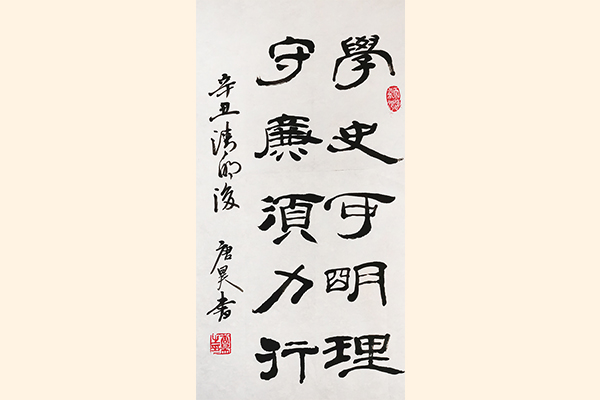 學史可明理
守廉須力行
辛丑清明後 唐昊書